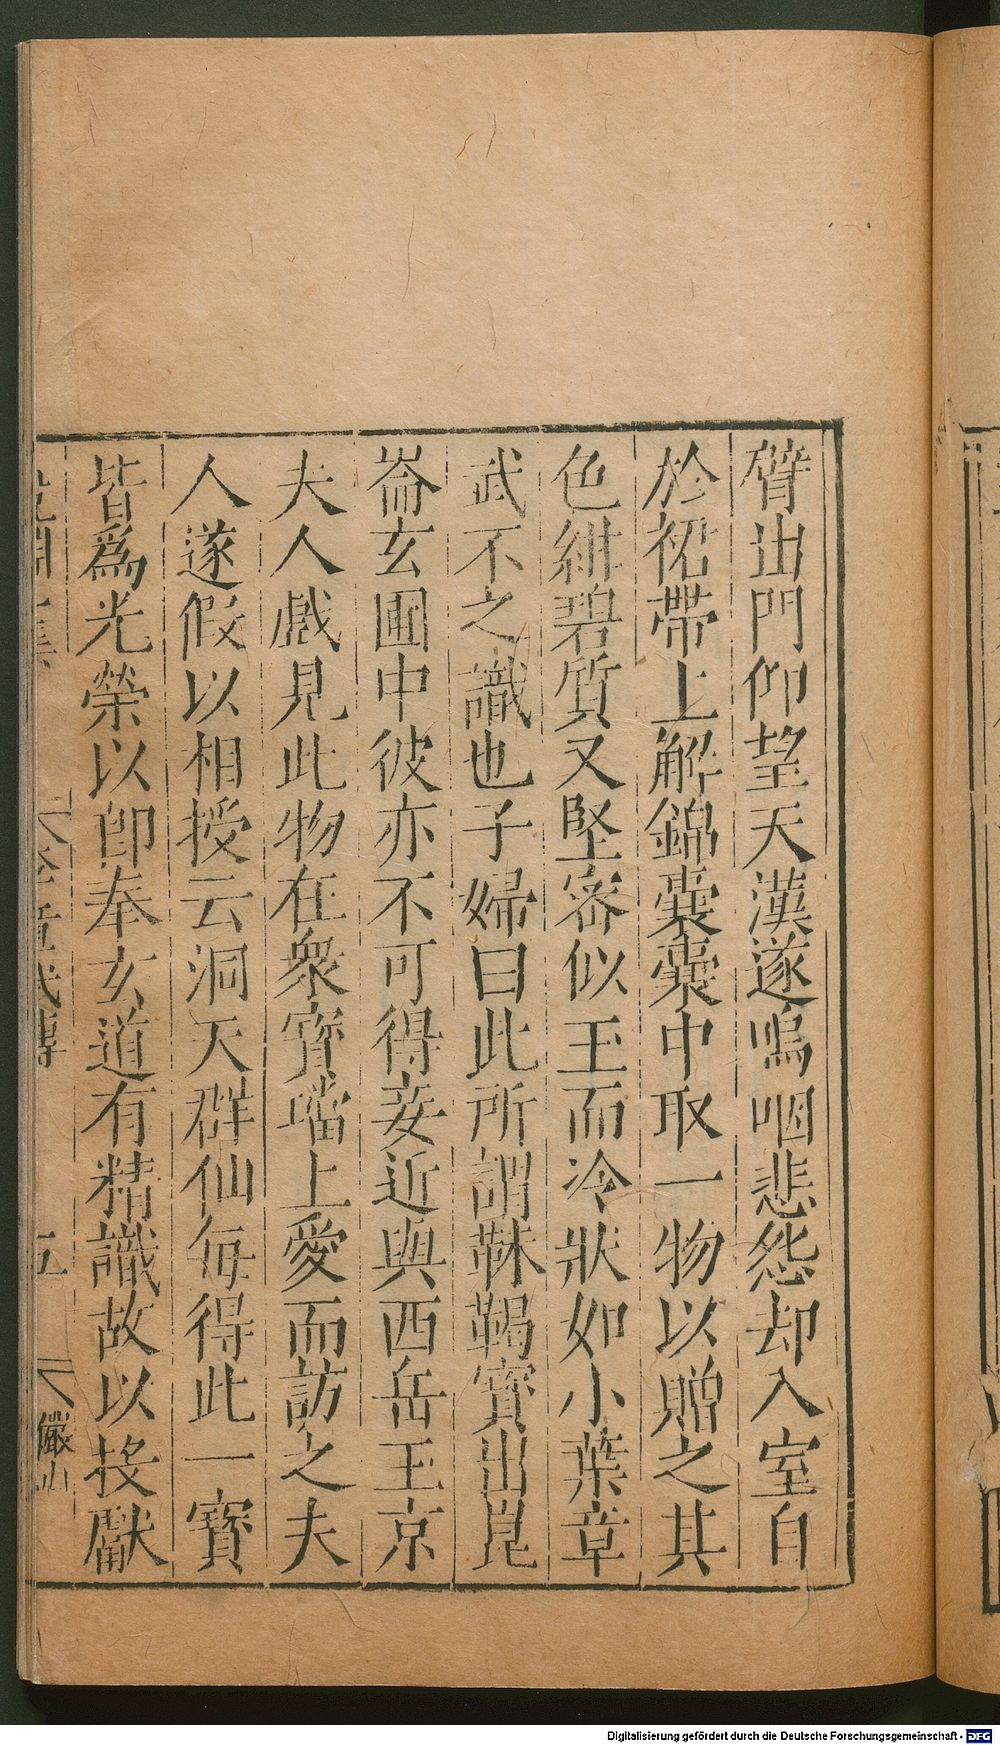 臂出門仰望天漢遂嗚咽悲怨却入室自
於裙帶上解錦囊囊中取一物以贈之其
色紺碧質又堅密似玉而冷狀如小葉章
武不之識也子婦曰此所謂靺鞨寶出崑
崙玄圃中彼亦不可得妾近與西岳玉京
夫人戲見此物在衆寶璫上愛而訪之夫
人遂假以相授云洞天群仙每得此一寶
皆爲光榮以郎奉玄道有精識故以投獻
五
儼山
Digitalisierung gefördert durch die Deutsche Forschungsgemeinschaft - DFG